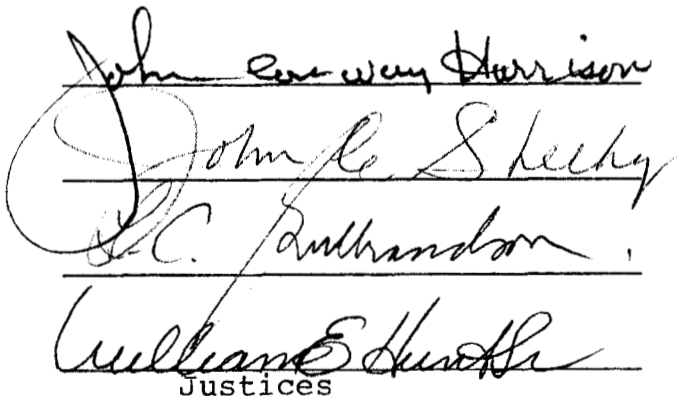 John Conway Harrison
John C. Sheehy
L.C. Gulbrandson
William E Hunt Sr
Justices